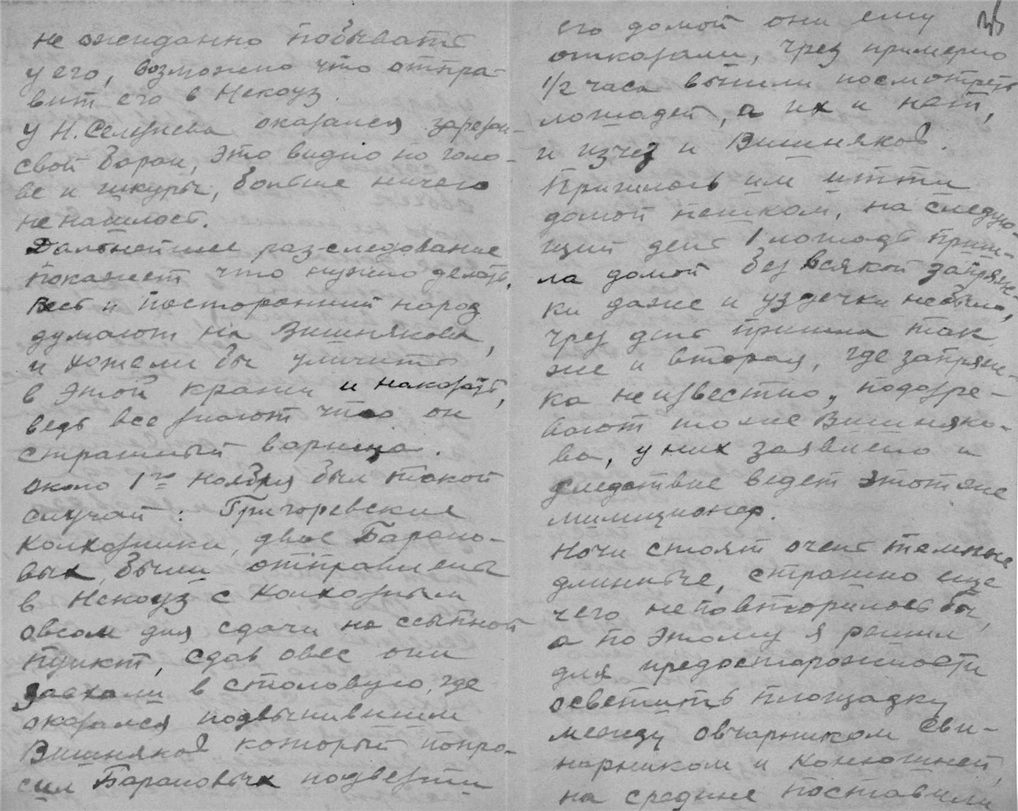 не ожиданно побывать
у его, возможно что отпра-
вит его в Некоуз.
У Н. Селезнева оказался зарезан
свой баран, это видно по голо-
ве и шкуры, больше ничего
не нашлось.
Дальнейшее расследование
покажет что нужно делать,
Весь и посторонний народ
думают на Вишнякова,
и хотели бы уличить
в этой кражи и наказать,
ведь все знают что он
страшный варища.
Около 1го ноября был такой
случай: Григоревские
колхозники, двое Барано-
вых, были отправлены
в Некоуз с колхозным
овсом для сдачи на ссыпной
пункт, сдав овес они
заехали в столовую, где
оказался подвыпившим
Вишняков который попро-
сил Барановых подвезти
36
его домой они ему
отказали, чрез примерно
1/2 часа вышли посмотреть
лошадей, а их и нет,
и изчез и Вишняков.
Пришлось им итти
домой пешком, на следую-
щий день 1 лошадь приш-
ла домой без всякой запряж-
ки даже и уздечки небыло,
чрез день пришла так
же и вторая, где запряж-
ка неизвестно, подозре-
вают тоже Вишняко-
ва, у них заявлено и
следствие ведет этот же
милиционер.
Ночи стоят очень темные
длинные, страшно еще
чего неповторилось бы,
а по этому я решил
для предосторожности
осветить площадку
между овчарником сви-
нарником и конюшней,
на средине поставили